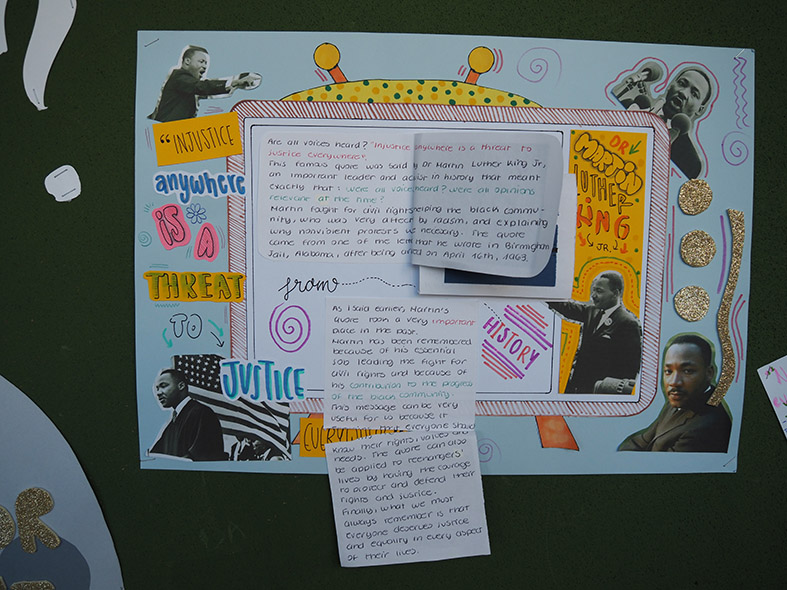 "INJUSTICE
anywhere
IS
A
THREAT
TO
JUSTICE
Are all voices heard? "Injustice anywhere is a threat to
justice everywhere".
This famous quote was said by Dr Martin Luther King Jr,
an important leader and in history that meant
exactly that: were all voices heard? were all opinions
relevant at the time?
Martin fought for civil rights helping the black commu-
nity, who was very by racism, and explaining
why nonviolent protests necessary. The quote
came from one of the that he wrote in Birmingham
Jail, Alabama, after being on April 16th, 1963.
from
HISTORY
As I said earlier, Martin's
quote took a very important
place in the past.
Martin has been remembered
because of his essential
job leading the fight for
civil rights and because of
his contribution to the progress
of the black community.
This message can be very
useful for us because it
everyone should
know their rights, values and
needs. The quote can also
be applied to teenagers'
lives by having the courage
to protect and defend their
rights and justice.
Finally, what we must
always remember is that
everyone deserves justice
and equality in every aspect
of their lives.
DR
MARTIN
LUTHER
KING
JR.